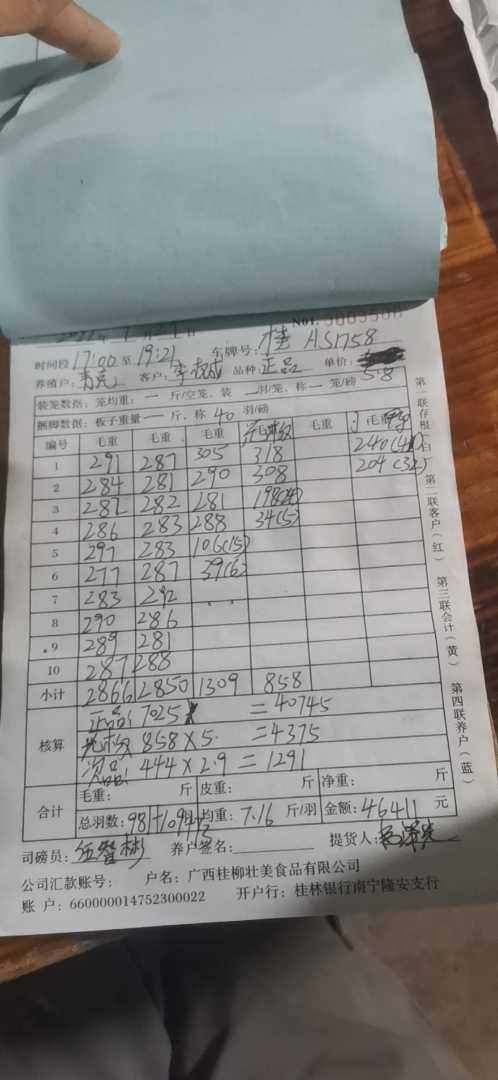 N01:
时间段 17:00 至 19:21 车牌号: 桂 AS1758
养殖户: 客户: 品种 正品 单价: 5.8
装笼数据: 笼均重: 一 斤/空笼、装 一 羽/笼、称 一 笼/磅
捆脚数据: 板子重量 一 斤、称 40 羽/磅
编号 毛重 毛重 毛重 毛重 毛重
1 291 287 305 318 240(41)
2 284 281 290 308 204(32)
3 282 282 281
4 286 283 288 34(5)
5 297 283 106(15)
6 277 287 39(6)
7 283 292
8 290 286
9 289 281
10 287 288
小计 2866 2850 1309 858
核算 正品: 7025 = 40745
858×5. = 4375
次品: 444×2.9 = 1291
合计 毛重: 斤 皮重: 斤 净重: 斤
总羽数: 981 均重: 7.16 斤/羽 金额: 46411 元
司磅员: 养户签名: 提货人:
公司汇款账号: 户名: 广西桂柳壮美食品有限公司
账 户: 660000014752300022 开户行: 桂林银行南宁隆安支行
第一联存根(白) 第二联客户(红) 第三联会计(黄) 第四联养户(蓝)